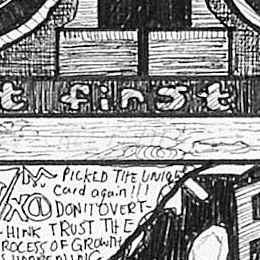 t first
PICKED THE UNIQUE
card again!!!
DON'T OVERT-
HINK TRUST THE
ROCESS OF GROWTH